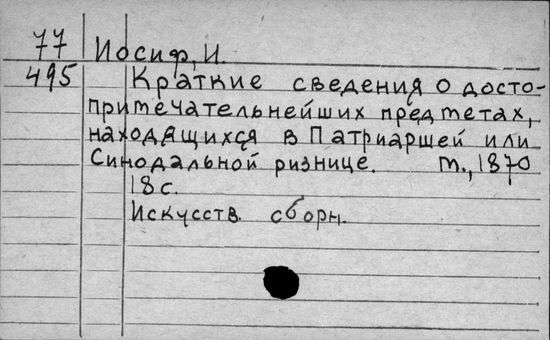 77 Иосиф, И.
495 Краткие сведения о досто-
примечательнейших предметах,
находящихся в Патриаршей или
Синодальной ризнице. М., 1870
18 с.
Искусств. сборн.